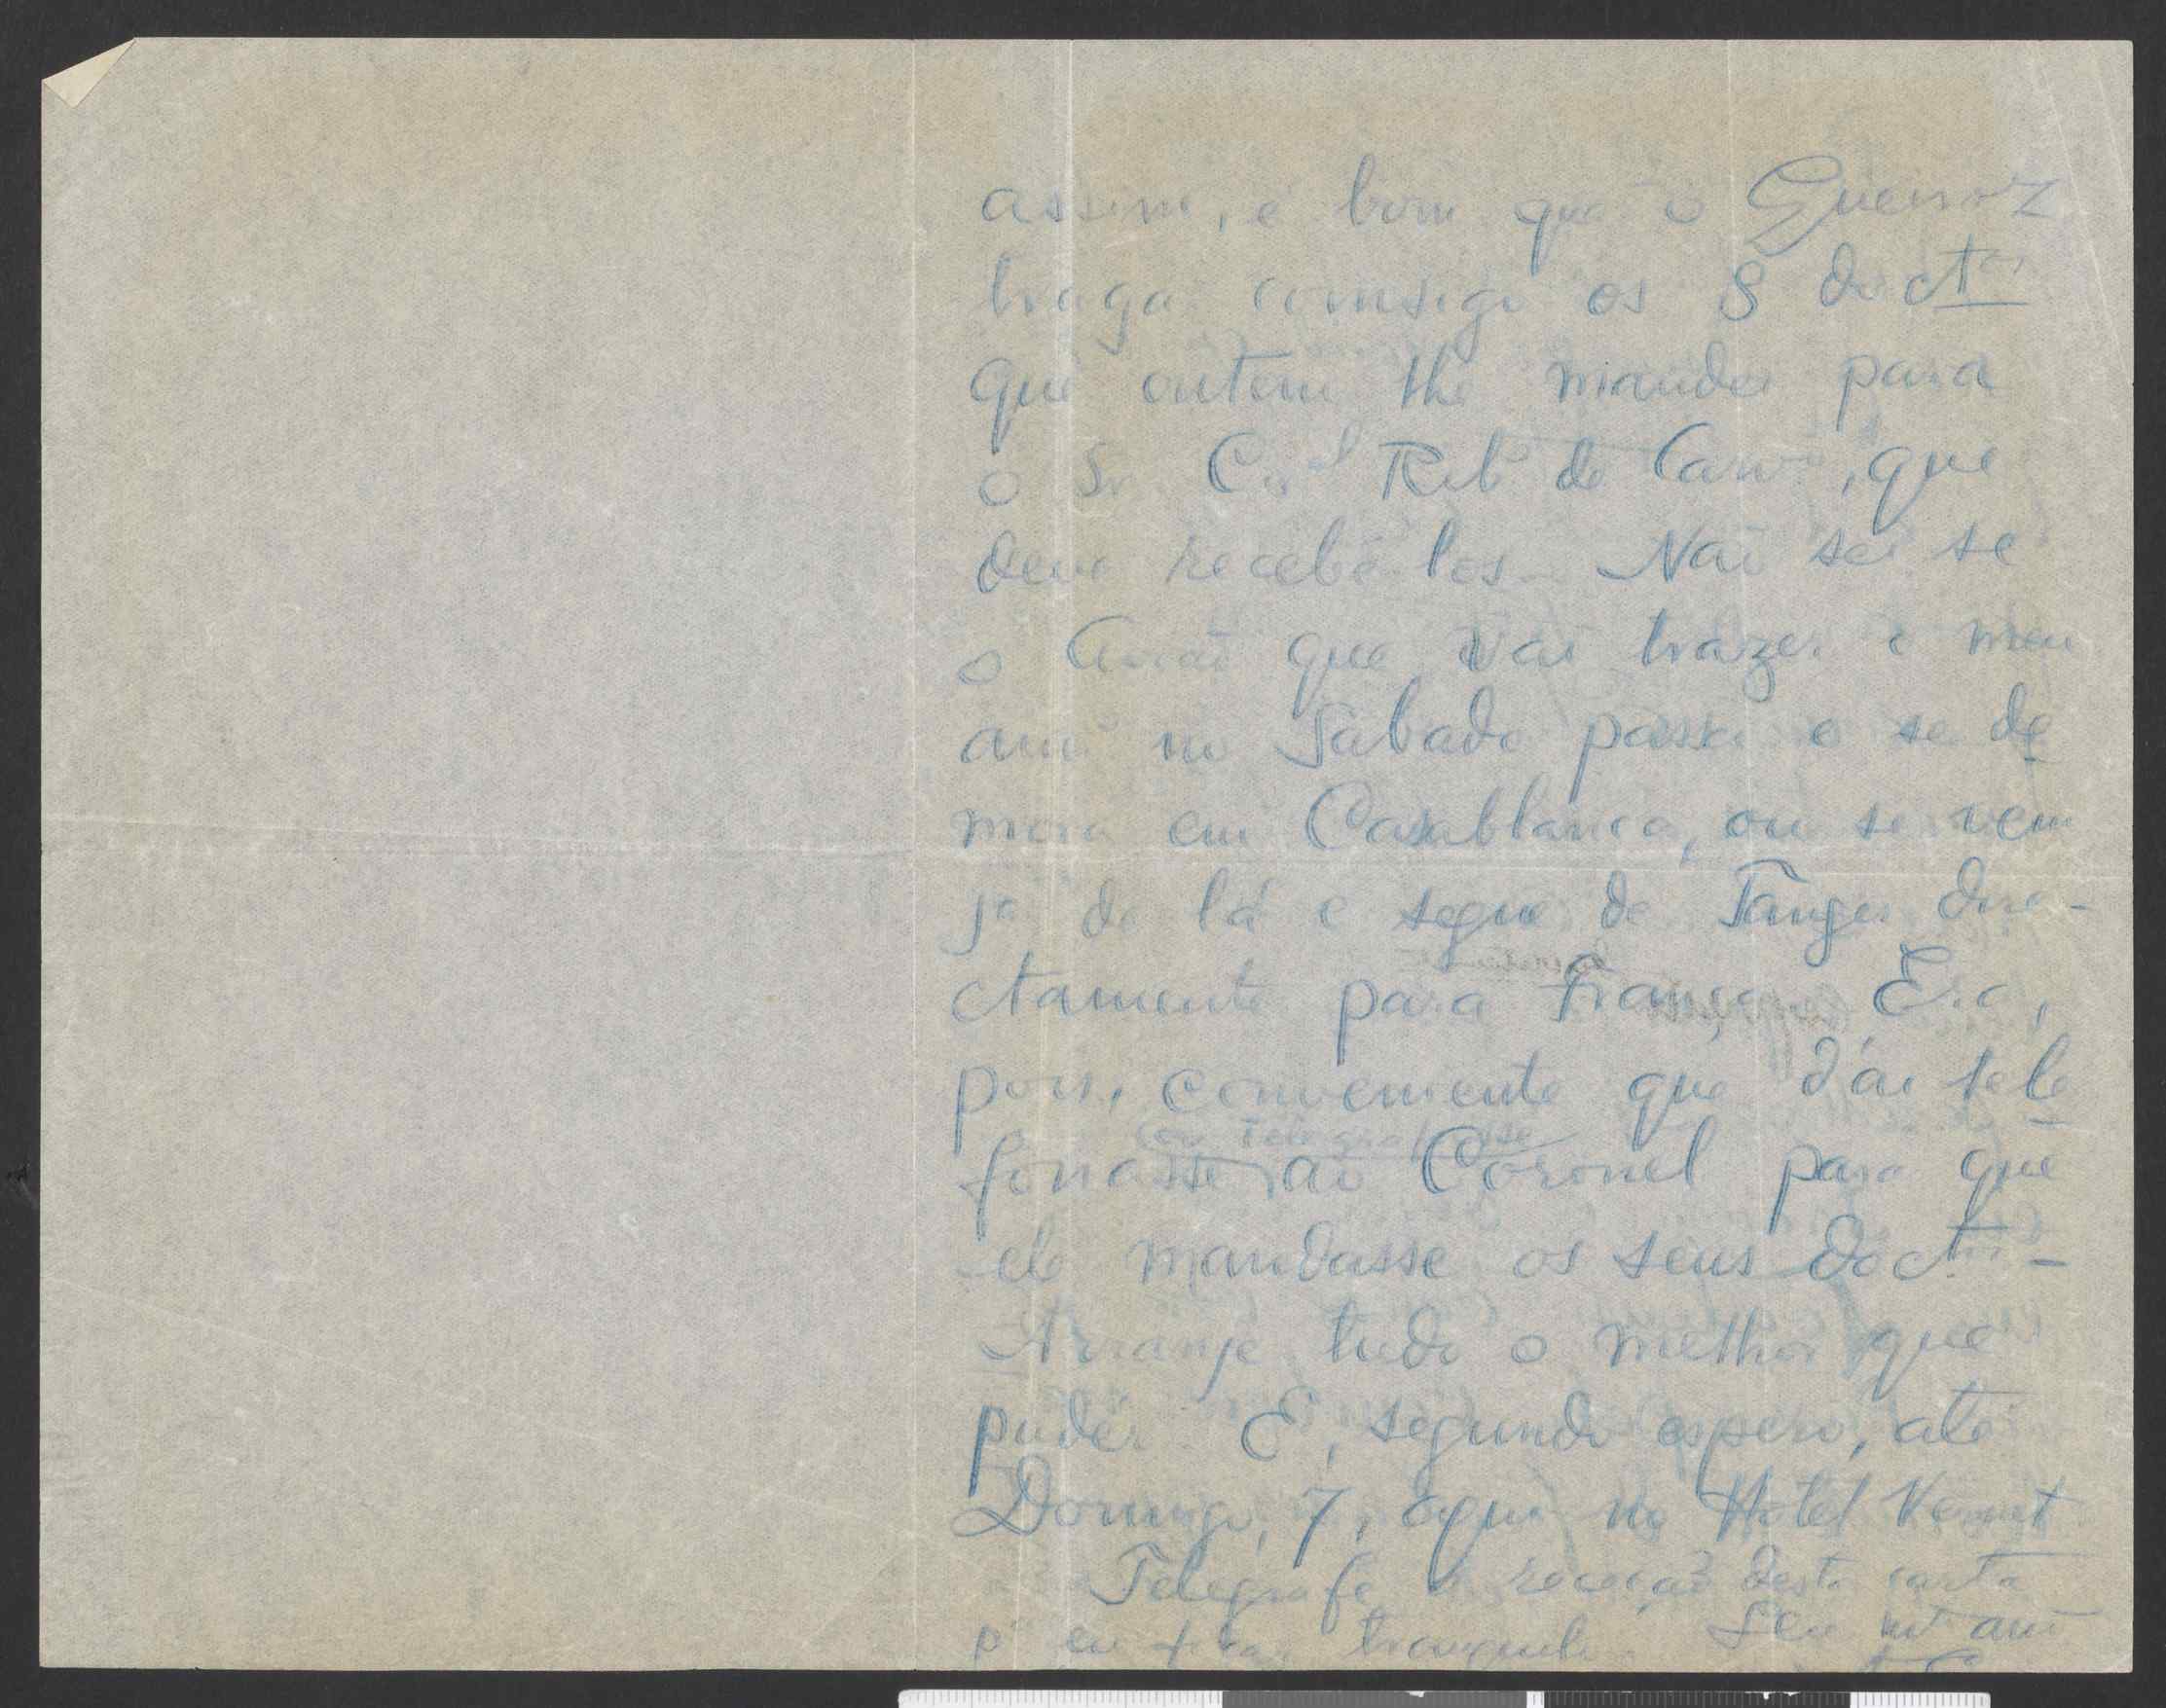 assim, é bom que o Queiroz
traga comsigo os 8 doctos
que ontem lhe mandei para
o Sr. Cor.el Rib.o de Carv.o, que
deve recebê-los. Não sei se
o avião que vai trazer o meu
amo no Sabado passa e se de
mora em Casablanca, ou se vem
já de lá e segue de Tanger dire-
ctamente para França. Era,
pois, conveniente que d'ái tele
(ou telegrafasse)
fonasse ao Coronel para que
ele mandasse os seus doctos -
Arranje tudo o melhor que
pudér. E, segundo espero, até
Domingo, 7, aqui no Hotel
Telegrafe a receção desta carta
pa eu ficar tranquilo. Seu mto amo